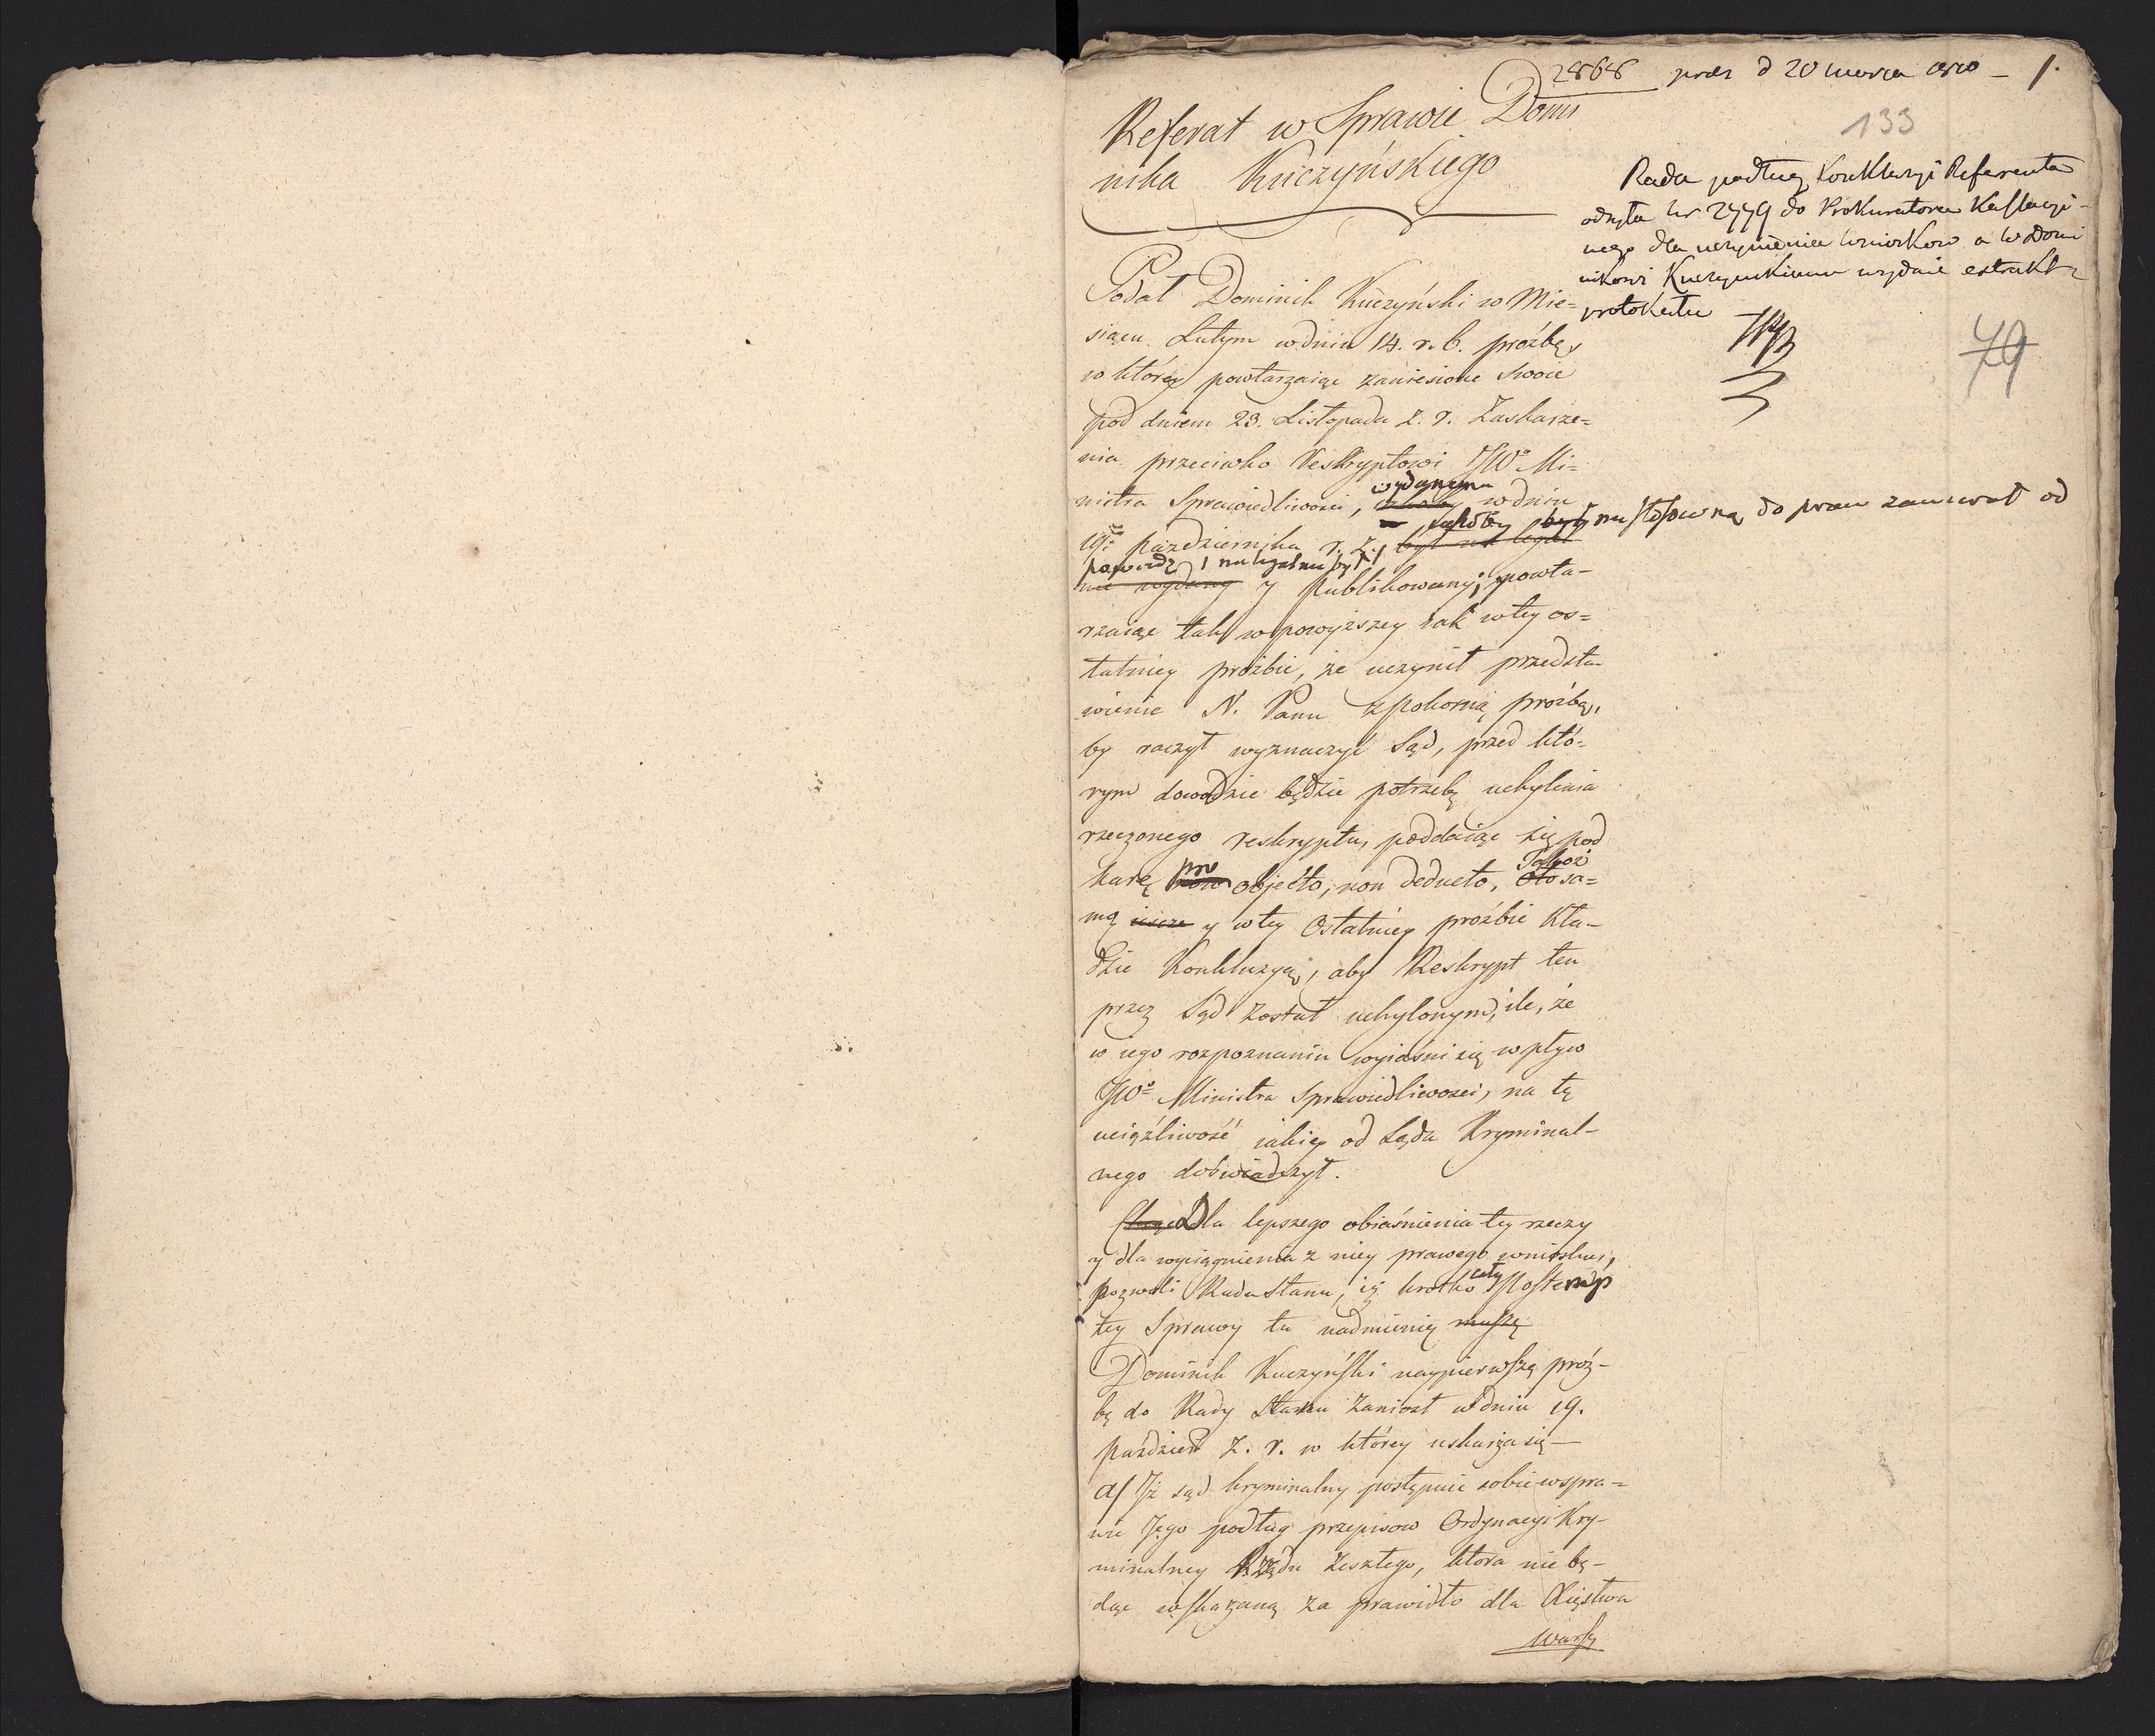 2868 præs d 20 marca 1810 – 1.
133
Referat w Sprawie Domi
nika Kuczyńskiego
Rada podług Konkluzyi Referenta
odsyła Nr 2779 do Prokuratora Kassacyi-
nego dla uczynienia wniosków a W Domi
nikowi Kuczynskiemu wydaie extrakt z
protokułu
79
Podał Dominik Kuczyński w Mie=
siącu Lutym w dniu 14. r. b. proźbę,
w którey powtarzaiąc zaniesione swoie
pod dniem 23. Listopada z. r. Zaskarze=
nia przeciwko Reskryptowi JWo Mi=
nistra Sprawiedliwości, wydanemu w dniu
19. Października r. z., jakoby był niestosowną do praw zawierał od
powiedz, i nielegalnie był
nie wydany y publikowany; powta-
rzaiąc tak w powyższey iak w tey os=
tatniey proźbie, że uczynił przedsta
wienie N. Panu z pokorną proźbą,
by raczył wyznaczyć Sąd, przed któ-
rym dowodzić będzie potrzebę uchylenia
rzeczonego reskryptu, poddaiąc się pod
karę pro objecto, non deducto, Takoż sa=
mą y w tey ostatniey proźbie kła-
dzie Konkluzyą, aby Reskrypt ten
przez Sąd został uchylonym, ile, że
w iego rozpoznaniu wyiaśni się wpływ
JWo Ministra Sprawiedliwości, na tę
uciążliwość iakiey od Sądu Kryminal-
nego doświadczył.
Dla lepszego obiaśnienia tey rzeczy
y dla wyciągnienia z niey prawego wniosku,
pozwoli Rada Stanu, iż krotko cały
tey Sprawy tu nadmienię muszę
Dominik Kuczyński naypierwszą proź-
bę do Rady Stanu Zaniosł w dniu 19.
Paździer Z. r. w którey uskarża się —
a/ Iż sąd kryminalny postępuie sobie w spra=
wie Jego podług przepisow Ordynacyi Kry-
minalney Rządu Zeszłego, ktora nie bę-
dąc wskazaną za prawidło dla Xięstwa
Warsz